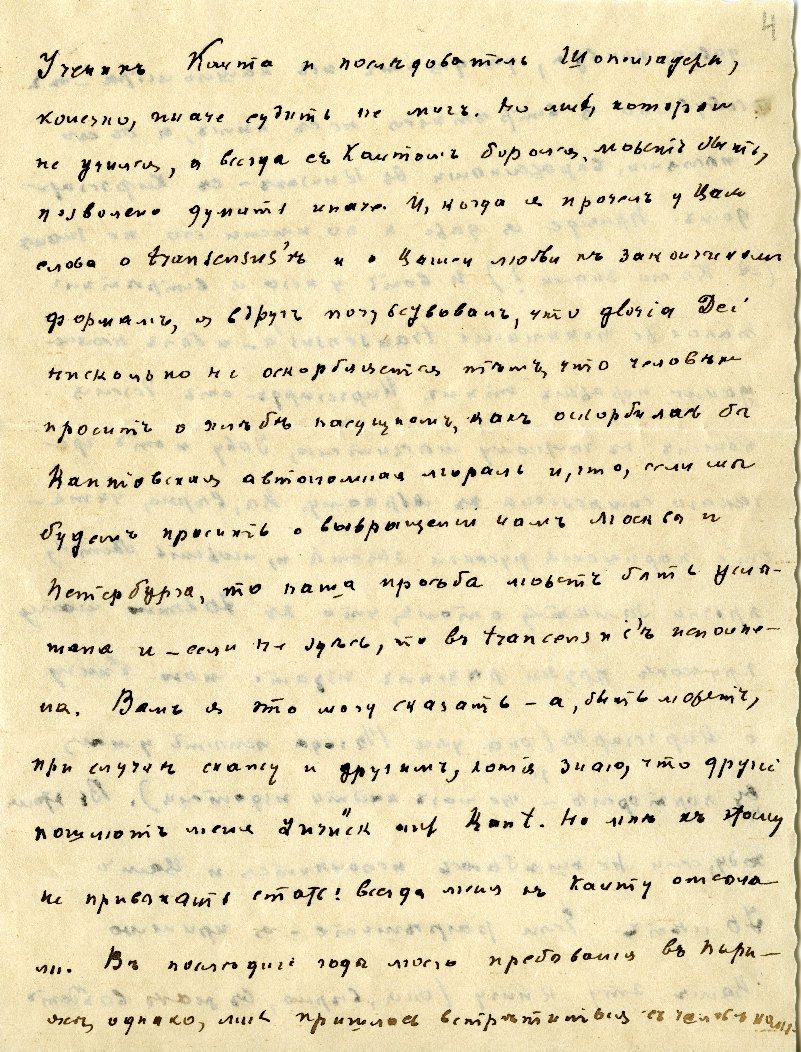 4
Ученикъ Канта и последователь Шопенгауера,
конечно, иначе судить не могъ. Но мнѣ, который
не учился, а всегда съ Кантомъ боролся, можетъ быть,
позволено думать иначе. И, когда я прочелъ у Васъ
слова о transensus'ѣ и о Вашей любви къ законченнымъ
формамъ, я вдругъ почувствовалъ, что gloria Dei
нисколько не оскорбляется тѣмъ, что человѣкъ
проситъ о хлѣбѣ насущномъ, какъ оскорбилась бы
Кантовская автономная мораль и, что, если мы
будемъ просить о возвращеніи намъ Москвы и
Петербурга, то наша просьба можетъ быть услы-
шана и – если не здѣсь, то въ transensus'ѣ исполне-
на. Вамъ я это могу сказать – а, быть можетъ,
при случаѣ скажу и другимъ, хотя знаю, что другіе
пошлютъ меня Zurück auf Kant. Но мнѣ къ этому
не привыкать стать! всегда меня къ Канту отсыла-
ли. Въ послѣдніе годы моего пребыванія въ Пари-
жѣ, однако, мнѣ пришлось встрѣтиться съ